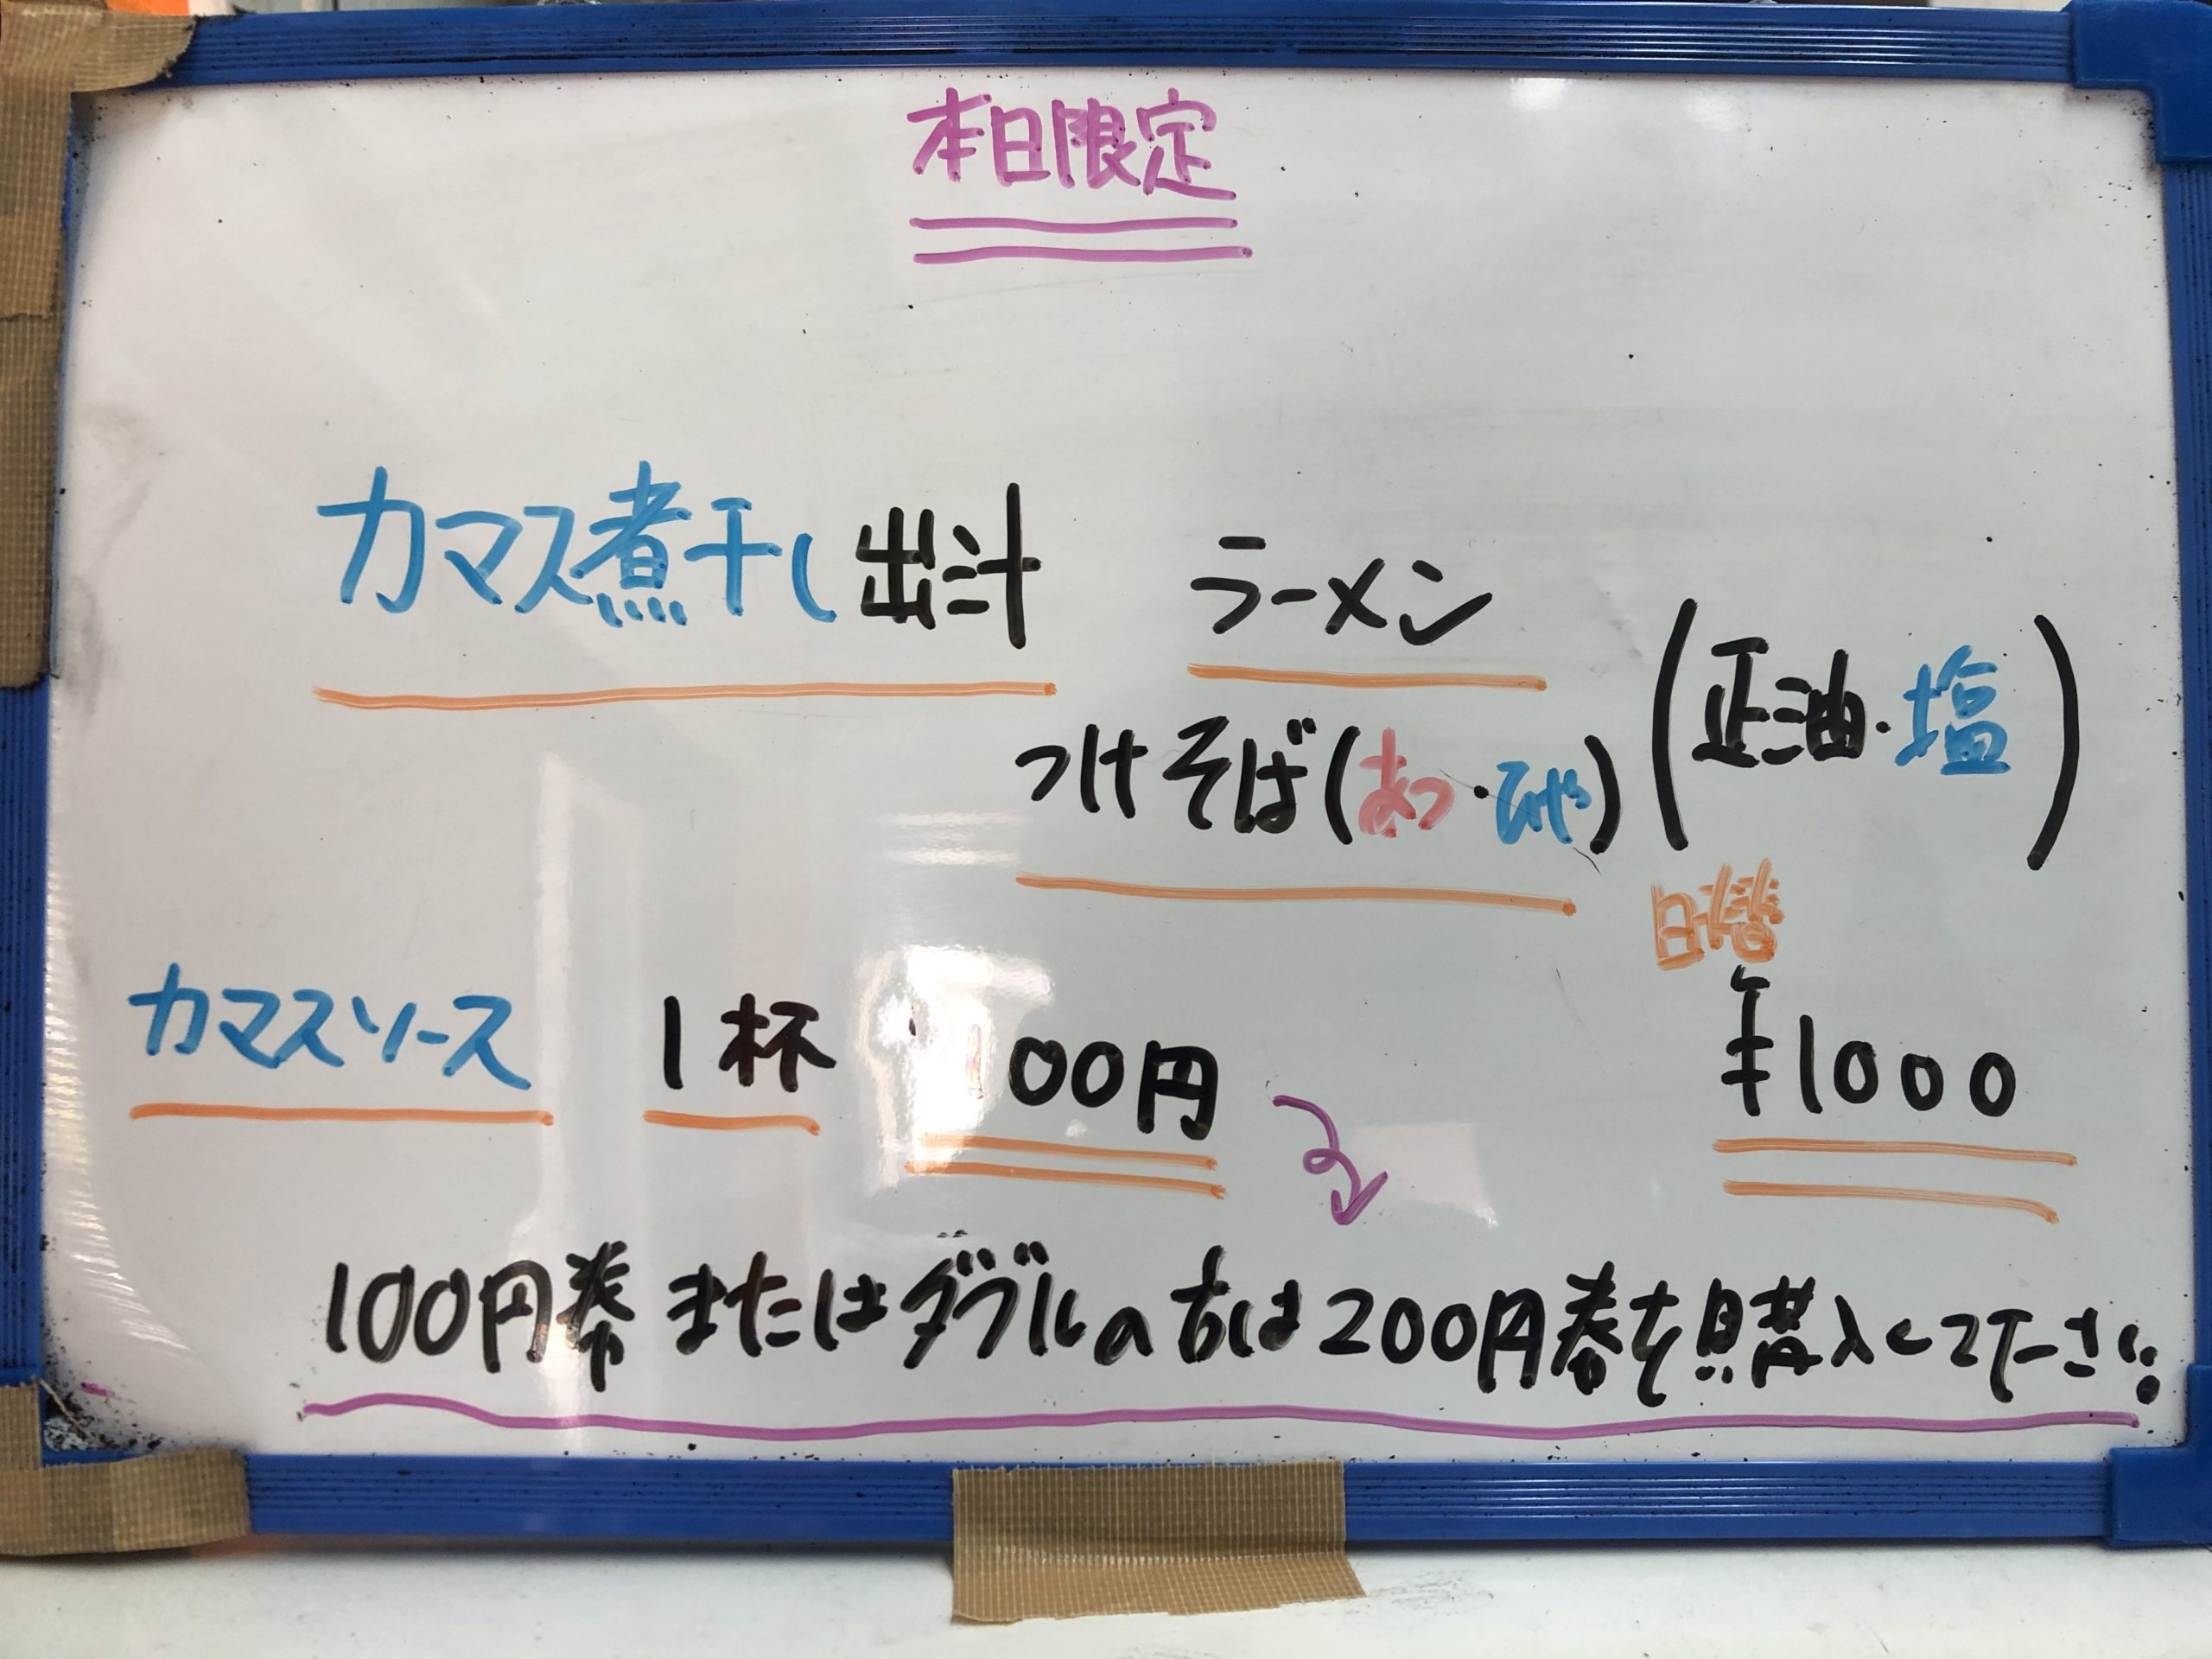 本日限定
カマス煮干し出汁 ラーメン
つけそば(あつ・ひや) (正油・塩)
カマスソース 1杯 100円 ¥1000
100円券またはダブルの方は200円券を購入して下さい!